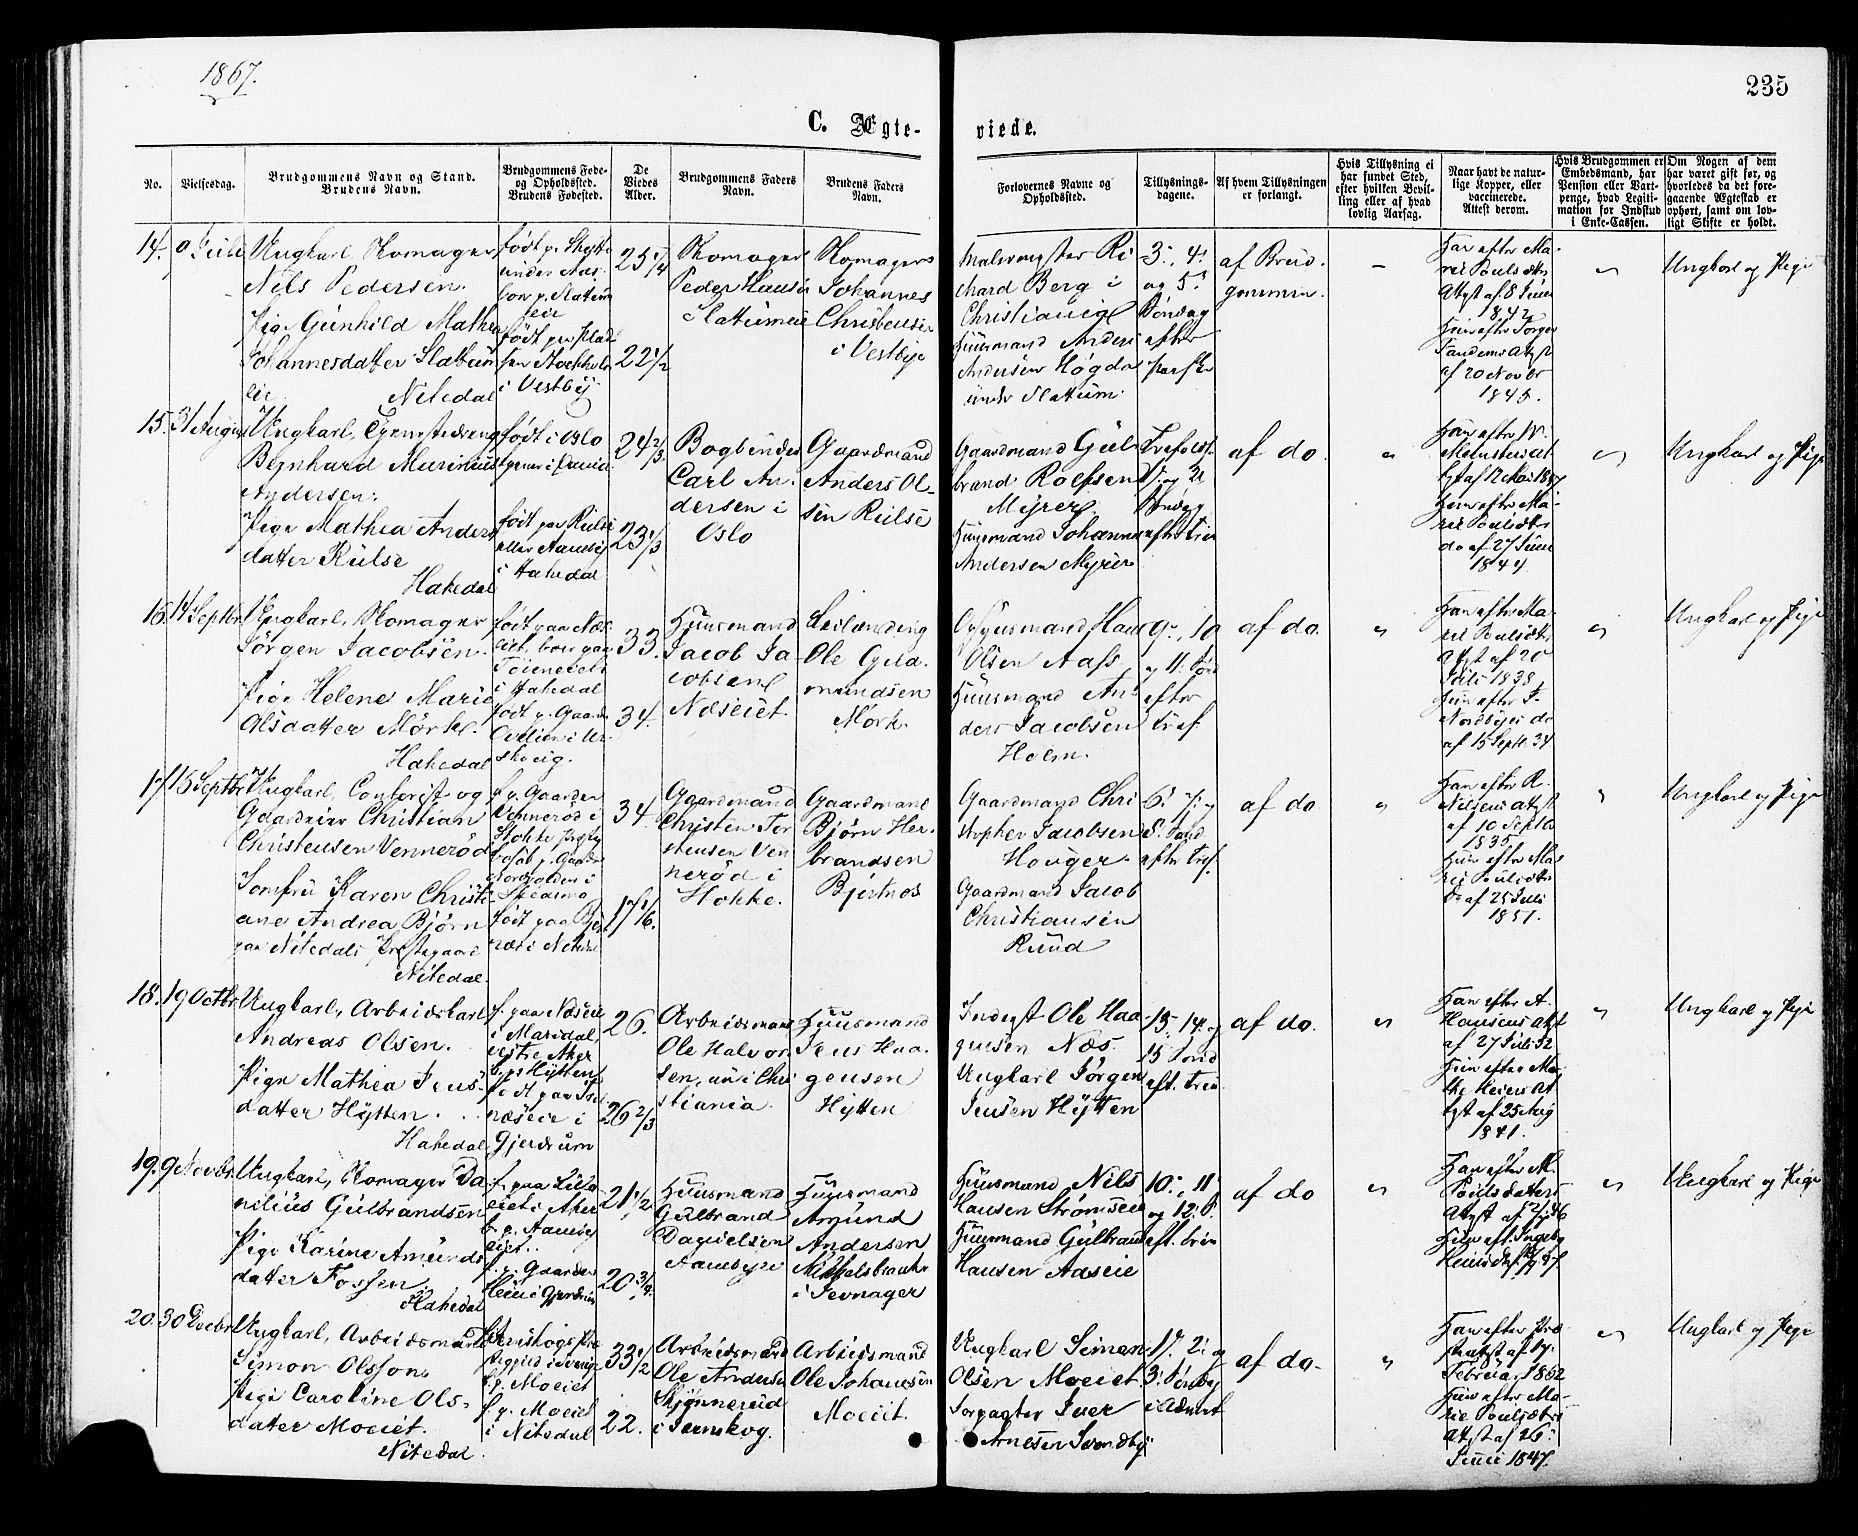 1867.
235
C. Ægte-
viede.
No.
Vielsesdag.
Brudgommens Navn og Stand.
Brudens Navn.
Brudgommens Føde-
og Opholdssted.
Brudens Fødested.
De
Viedes
Alder.
Brudgommens Faders
Navn.
Brudens Faders
Navn.
Forlovernes Navne og
Opholdssted.
Tillysnings-
dagene.
Af hvem Tillysningen
er forlangt.
Hvis Tillysning ei
har fundet Sted,
efter hvilken Bevil-
ling eller af hvad
lovlig Aarsag.
Naar havt de natur-
lige Kopper, eller
vaccinerede.
Attest derom.
Hvis Brudgommen er
Embedsmand, har
Pension eller Vart-
penge, hvad Legiti-
mation for Indskud
i Enke-Cassen.
Om Nogen af dem
har været gift før, og
hvorledes da det fore-
gaaende Ægteskab er
ophørt, samt om lov-
ligt Skifte er holdt.
14.
9 Juli
Ungkarl, Skomager
Nils Pedersen.
Pige Gunhild Mathea
Johannesdatter Slattum
eie. Nitedal
født p. Skytte
under Aas.
født paa Plad-
sen Stockholm
i Vestby
25 1/4
22 1/2
Skomager
Peder Hansen
Slattumeie
Skomager
Johannes
Christensen
i Vestbye
Malermester Ri
chard Berg i
Christiania
Huusmand Anders
Andersen Høgda
under Slattum.
3., 4.
og 5.
Søndag
efter
Paaske
af Brud-
gommen.
Han efter Ma-
rie Poulsdtr
Attest af 8 Juni
1842
Hun efter Jørgen
Tandems Attst
af 20 Novbr
1845.
Ungkarl og Pige
15.
31 August
Ungkarl, Tjenestedreng
Bernhard Marinius
Andersen.
Pige Mathea Anders
datter Rulse
Hakedal
født i Oslo
født paa Rulse
eller Aaneby
i Hakedal
24 2/3
23 1/3
Bogbinder
Carl An-
dersen i
Oslo
Gaardmand
Anders Ol-
sen Rulse
Gaardmand Gul
brand Rolfsen
Myrer.
Huusmand Johannes
Andersen Myrer
Trefoldh.
1. og 2
Søndag
efter Trin
af do.
Hun efter Ma-
rie Poulsdtr
do af 27 Juni
1844.
Ungkarl og Pige
16.
14 Septbr
Ungkarl, Skomager
Jørgen Jacobsen.
Pige Helene Marie
Olsdatter Mørk.
Hakedal
født paa Næs-
eiet, boer paa
i Hakedal
født p. Gaarden
33.
34.
Huusmand
Jacob Ja-
cobsen
Næseiet.
Leilænding
Ole Guld-
mundsen
Mørk.
Olsen Aass
Huusmand An-
ders Jacobsen
Holm.
9., 10
og 11. Sønd
efter
Tref.
af do.
Han efter Ma-
rie Poulsdtr
Attst af 20
Juli 1838
Hun efter J.
Nordbyes do
af 15 Septb. 34
Ungkarl og Pige
17.
15 Septbr
Ungkarl, Contorist og
Gaardeier Christian
Christensen Vennerød
Jomfru Karen Christi-
ane Andrea Bjørn
paa Nitedals Prestegaard
Nitedal.
f. p. Gaarden
Vennerød i
Stokke Præste
født paa Bjert-
næs i Nitedal
34.
17 1/16.
Gaardmand
Christen Tor
stensen Ven
nerød i
Stokke.
Gaardmand
Bjørn Her-
brandsen
Bjertnes
Gaardmand Chri
stopher Jacobsen
Houger.
Gaardmand Jacob
Christiansen
Ruud
6. 7. og
8. Sønd
efter Tref.
af do
Han efter R.
Nilsens Attst
af 10 Septb
1835
Hun efter Ma-
rie Poulsdtr
do af 25 Juli
1851.
Ungkarl og Pige
18.
19 Octbr.
Ungkarl, Arbeidskarl
Andreas Olsen.
Pige Mathea Jens-
datter Hytten.
Hakedal
f. paa Næseie
i Maridal,
vestre Aker
b. p. Hytten
født paa
næseie i
Gjerdrum
26.
26 2/3
Arbeidsmand
Ole Halvor
sen, nu i Chri
stiania.
Huusmand
Jens Haa-
gensen
Hytten
Inderst Ole Haa
gensen Næs.
Ungkarl Jørgen
Jensen Hytten
13. 14. og
15 Sønd
eft. Trin
af do.
Han efter A.
Hansens Attst
af 27 Juli 42
Hun efter Ma-
the Heiers At
test af 25 Aug
1841.
Ungkarl og Pige
19.
9 Novbr.
Ungkarl, Skomager Da
nilius Gulbrandsen
Pige Karine Amunds
datter Fossen.
Hakedal
f. paa Lille
eiet i Aker
b. p. Aaneby
eiet.
f. p. Gaarden
Heni i Gjerdrum
21 1/2
20 3/4.
Huusmand
Gulbrand
Danielsen
Aanebyeie
Huusmand
Amund
Andersen
Mikkelsbraaten
i Jevnager
Huusmand Nils
Hansen Strømseie
Huusmand Gulbrand
Hansen Aaseie
10., 11
og 12. S.
eft. Trin
af do
Han efter M.
Poulsdatters
Ungkarl og Pige
20.
30 Decbr.
Ungkarl, Arbeidsmand
Simon Olsson
Pige Caroline Ols-
datter Moeiet.
Nitedal.
b. p. Moeiet
f. p. Moeiet
i Nitedal
33 1/2
22.
Arbeidsmand
Ole Anderse
Skjønnerud
i Jernskog.
Arbeidsmand
Ole Johansen
Moeiet.
Ungkarl Simen
Olsen Moeiet.
Forpagter Iver
Arnesen Sørndby
1. 2. og
3. Søndag
i Advent
af do.
Han efter Præ
steattst af 17.
Februar 1862
Hun efter Ma-
rie Poulsdtrs
Attst af 26
Juni 1847.
Ungkarl og Pige